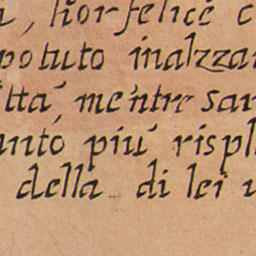 , hor felice c
potuto inalzzar
ttà, mentre san
anto più rispl
della di lei v